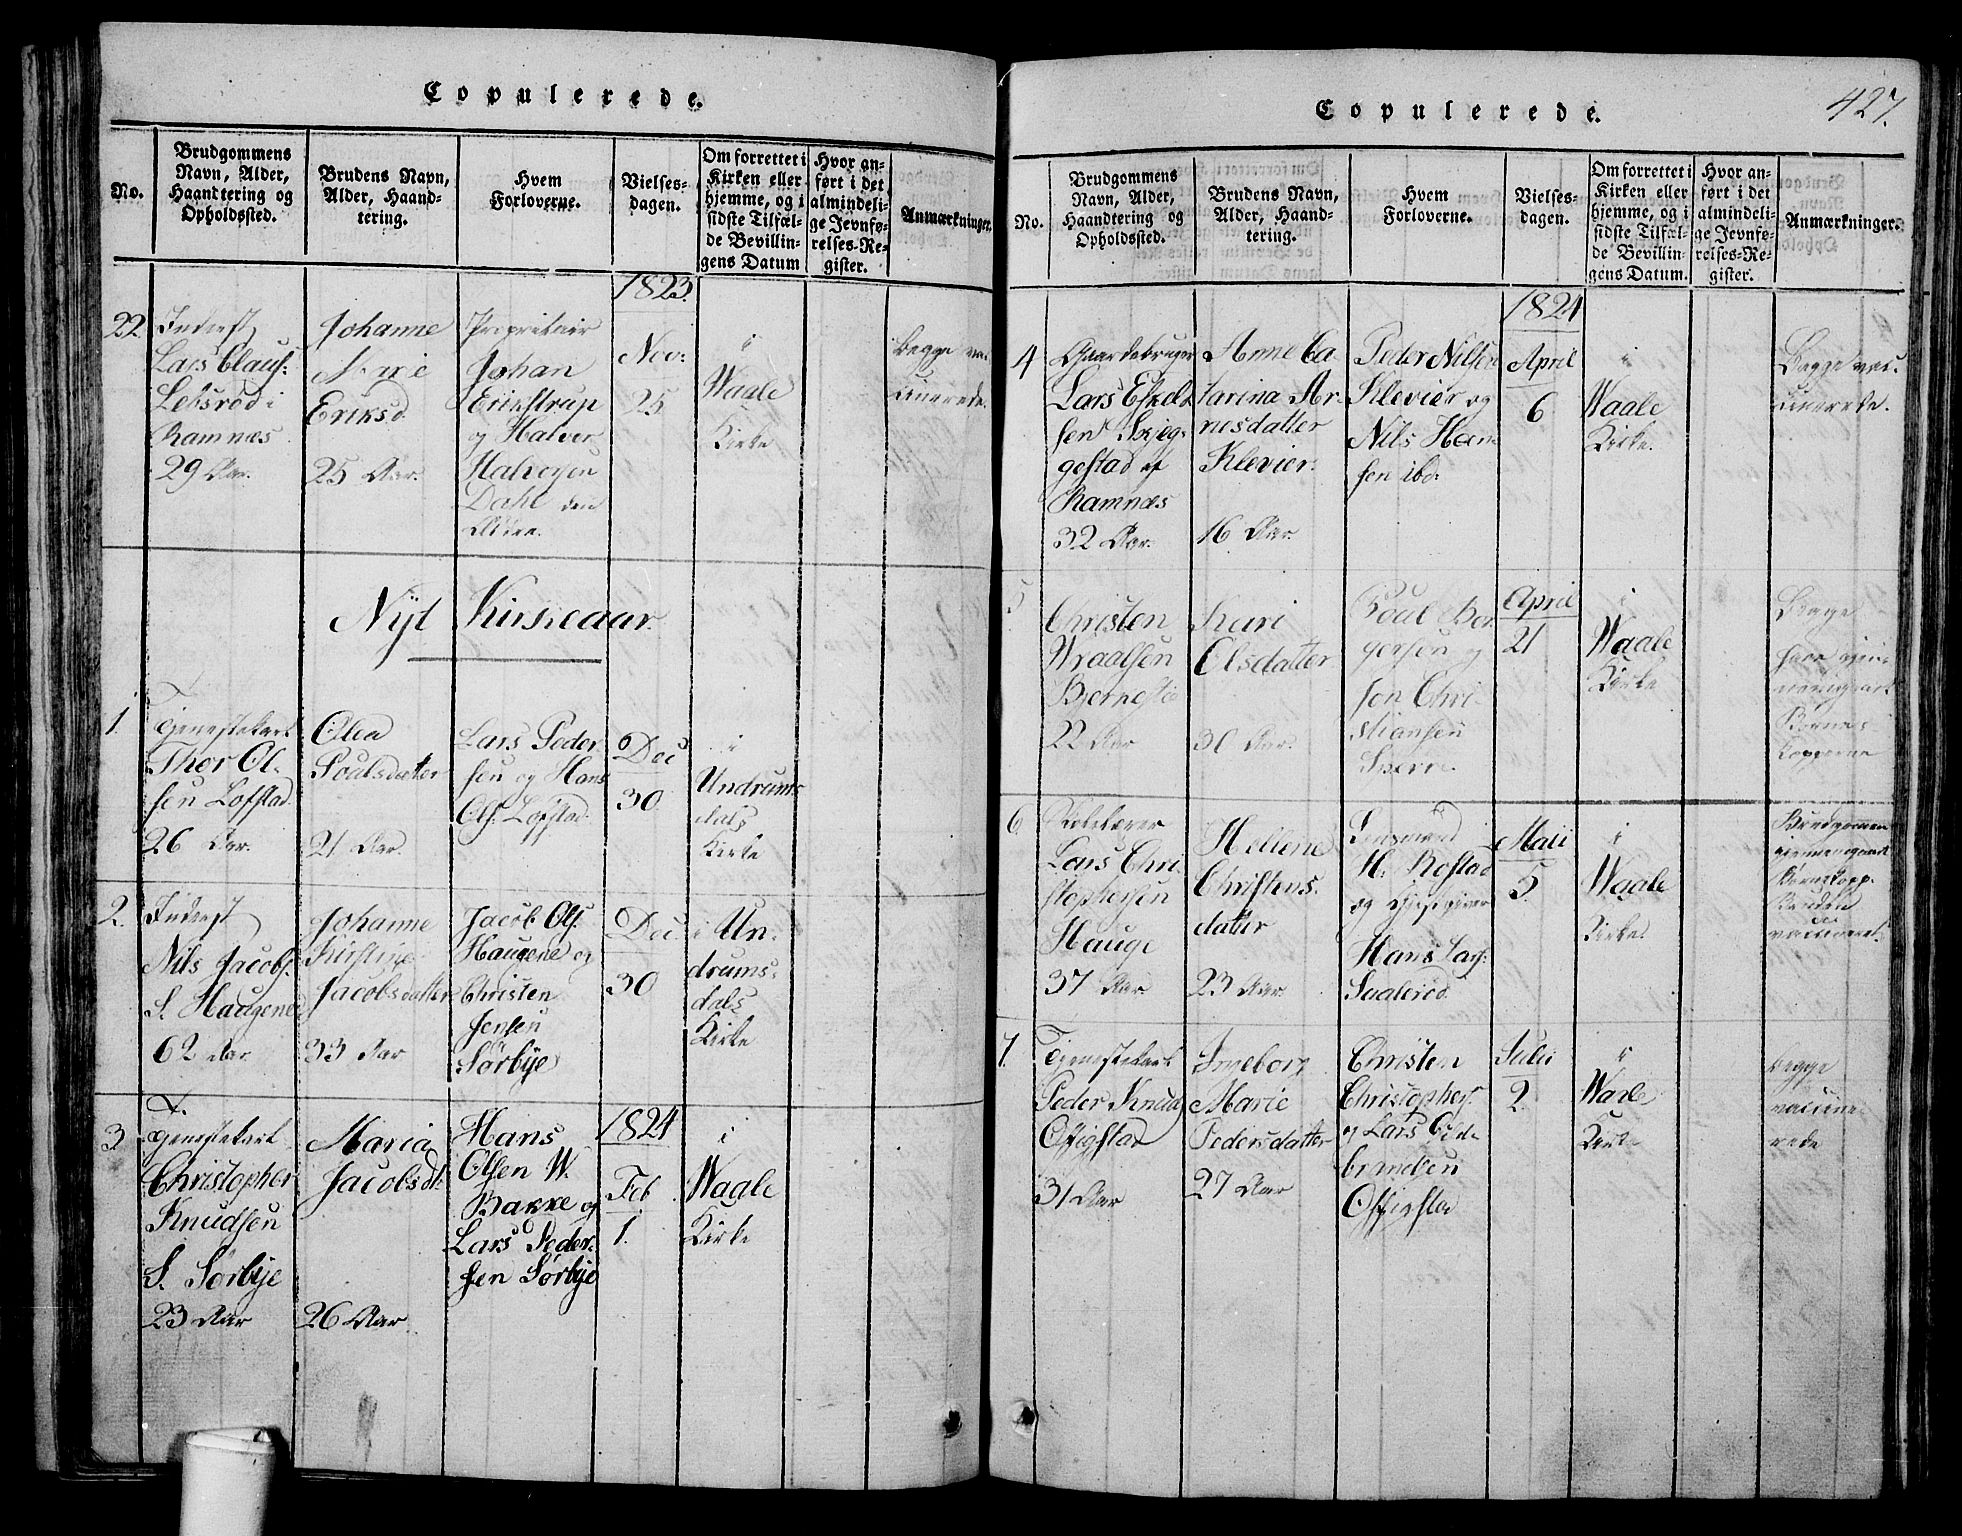 Copulerede.
No.
Brudgommens
Navn, Alder,
Haandtering og
Opholdssted.
Brudens Navn,
Alder, Haand-
tering.
Hvem
Forloverne.
Vielses-
dagen.
Om forrettet i
Kirken eller
hjemme, og i
sidste Tilfæl-
de Bevillin-
gens Datum
Hvor an-
ført i det
almindeli-
ge Jevnfø-
relses-Re-
gister.
Anmærkninger.
22.
Inderst
Lars Claus:
Lebsröd i
Ramnæs
29 Aar.
Johanne
Marie
Eriksd
25 Aar.
Proprietair
Johan
Erikstrup
og Halver
Halvorsen
Dahl den
Ældre.
1823.
Nov:
25
i
Waale
Kirke
Begge vac
cinerede.
Nyt Kirkeaar.
1.
Tjenestekarl
Thor Ol-
sen Lofstad.
26 Aar.
Olea
Poulsdatter
21 Aar.
Lars Peder
sen og Hans
Ols: Lofstad.
Dec
30
i
Undrums
dals
Kirke
2.
Inderst
Nils Jacobs.
S. Haugene
62 Aar
Johanne
Kirstine
Jacobsdatter
33 Aar
Jacob Ols.
Haugene og
Christen
Jensen
Sörbye
Dec.
30
i Un-
drums-
dals
Kirke
3
Tjenestekarl
Christopher
Knudsen
S. Sörbye
23 Aar
Maria
Jacobsdt.
26 Aar.
Hans
Olsen W.
Bakke og
Lars Peder-
sen Sörbye
1824
Feb.
1.
i
Waale
Kirke
427.
Copulerede.
No.
Brudgommens
Navn, Alder,
Haandtering og
Opholdssted.
Brudens Navn,
Alder, Haand-
tering.
Hvem
Forloverne.
Vielses-
dagen.
Om forrettet i
Kirken eller
hjemme, og i
sidste Tilfæl-
de Bevillin-
gens Datum.
Hvor an-
ført i det
almindeli-
ge Jevnfø-
relses-Re-
gister.
Anmærkninger.
4
Gaardebruger
Lars Eskels
sen Skjeg-
gestad af
Ramnæs
32 Aar.
Anne Ca-
tarina Ar-
nesdatter
Klevier.
16 Aar.
Peder Nilsen
Klevier og
Nils Han
sen ibd.
1824
April
6
i
Waale
Kirke.
Begge vac-
cinerede.
5
Christen
Wraalsen
22 Aar
Kari
Olsdatter
30 Aar.
Poul Bor
gersen og
Chri-
stiansen
April
21
i
Waale
Kirke
Begge
have gjen-
Börne-
kopperne
6
Lars Chri
stophersen
Hauge
37 Aar
Hellene
Christens.
datter
23 Aar.
Lensmand
H. Rostad
og Gjestgiver
Hans Lars:
Maii
5.
i
Waale
Kirke.
Brudgommen
gjennemgaaet
Börnekopp.
Bruden
vaccineret.
7.
Tjenestekarl
Peder Knuds
Offigstad
31 Aar
Ingeborg
Marie
Pedersdatter
27 Aar
Christen
Christophers.
og Lars Gul-
brandsen
Offigstad
Julii
2.
i
Waale
Kirke
begge
vaccine-
rede